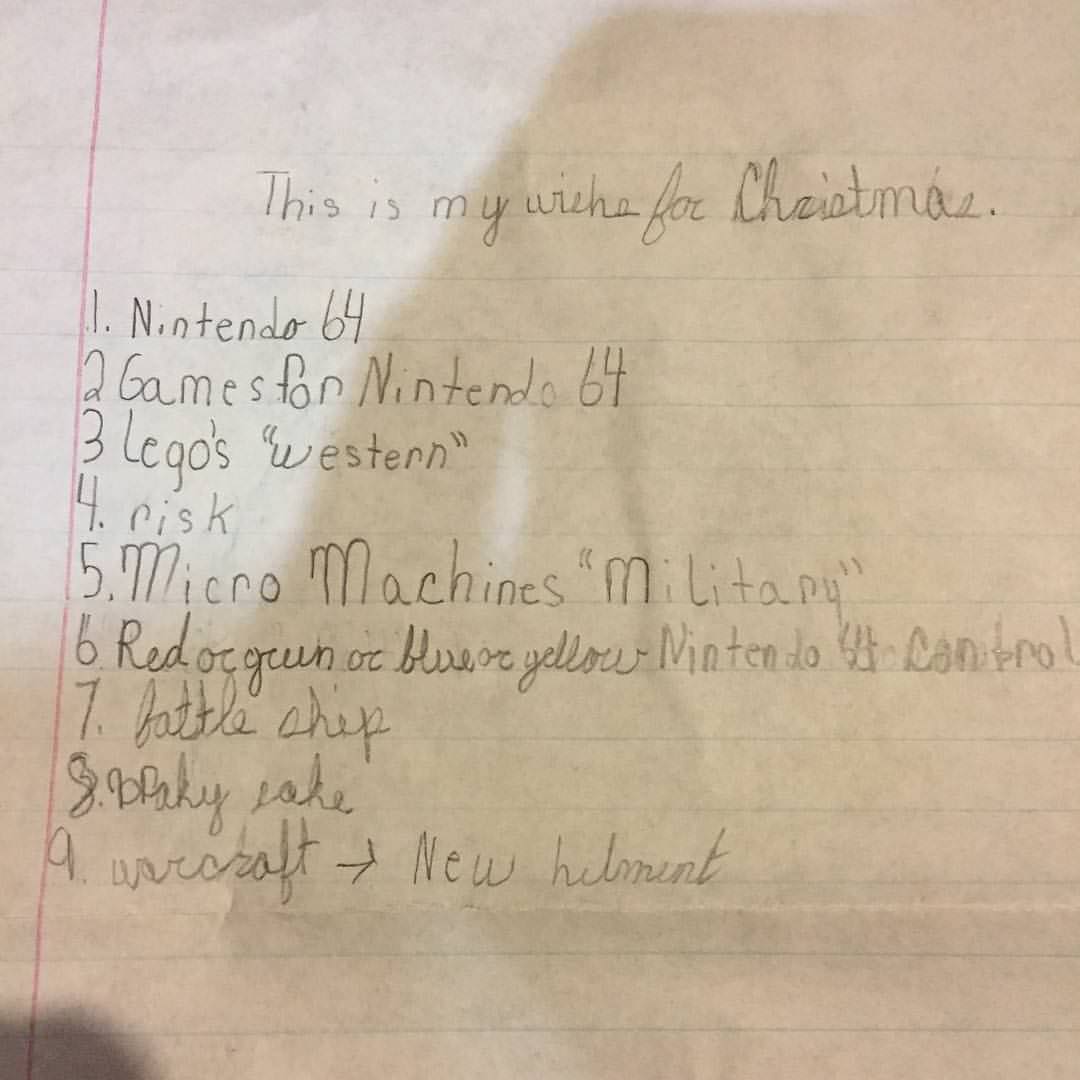 This is my wishs for Christmas.
1. Nintendo 64
2 Games for Nintendo 64
3 Lego's "western"
4. risk
5. Micro Machines "Military"
6 Red or green or blue or yellow Nintendo 64 Control
7. battle ship
8.
9. warcraft → New helment